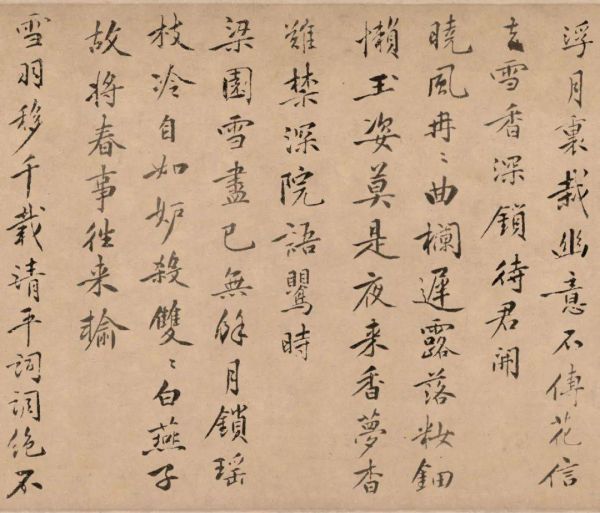 浮月裏栽幽意不傳花信
去雪香深鎖待君開
曉風冉〻曲欄遲露落籹鈿
懶玉姿莫是夜来香夢杳
難禁深院語鸎時
梁園雪盡已無餘月鎖瑶
枝冷自如妒殺雙〻白燕子
故将春事往来輸
雪羽移千載清平詞調絶不